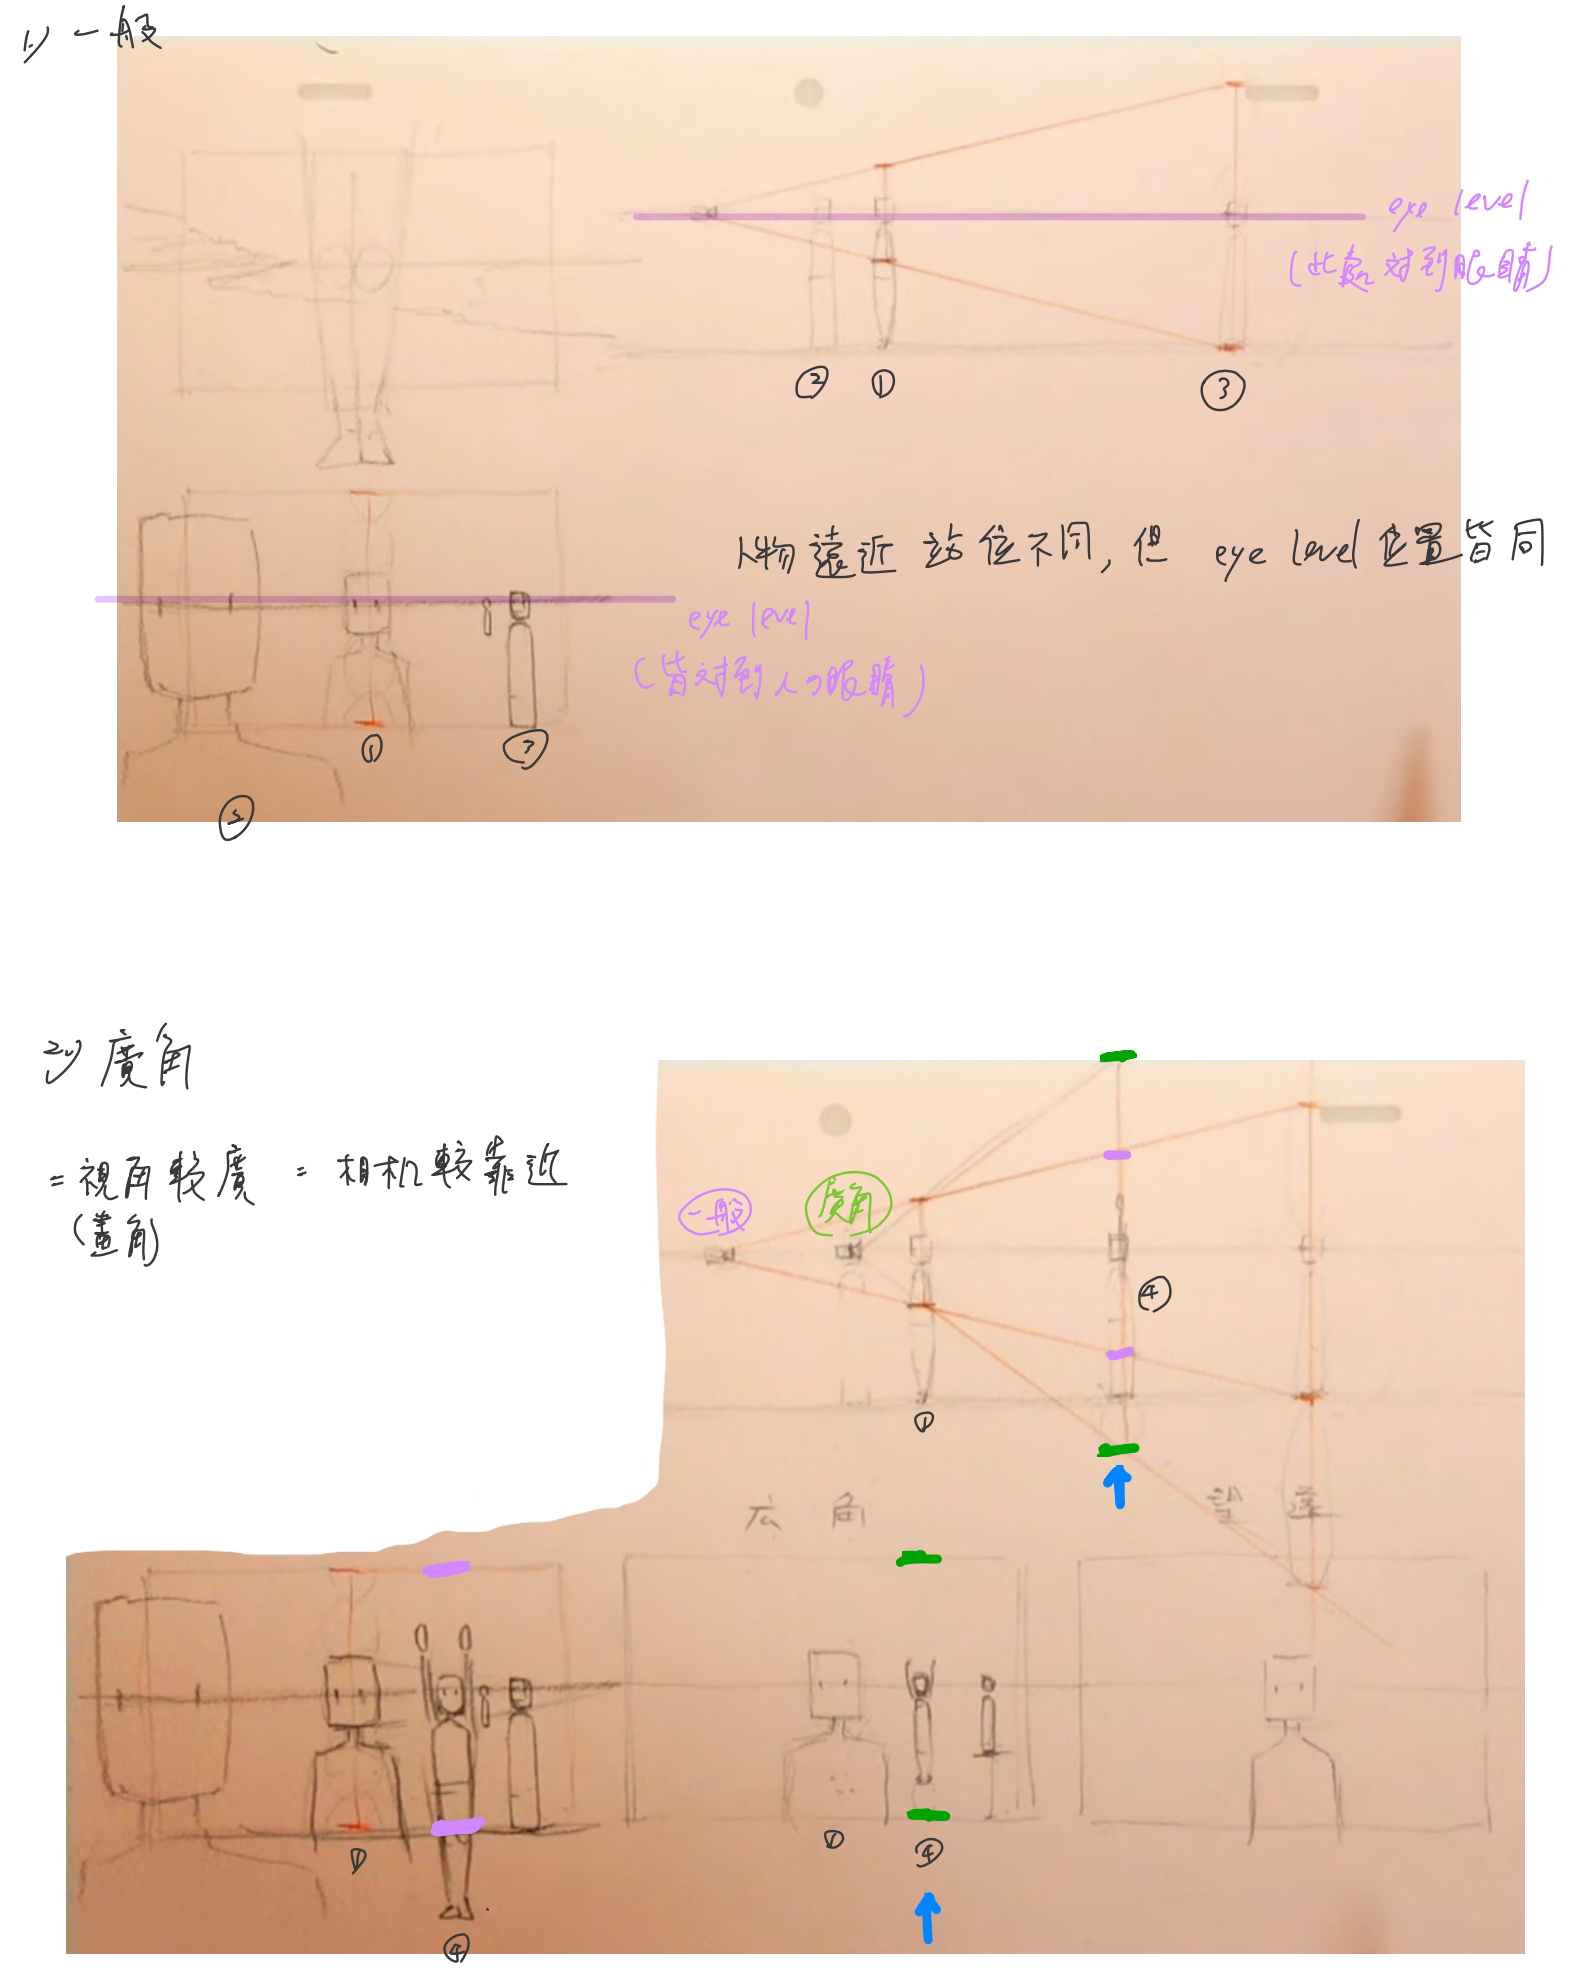 1.) 一般
eye level
(此處対到眼睛)
② ① ③
人物遠近站位不同, 但 eye level 位置皆同
eye level
(皆対到人の眼睛)
① ③
②
2.) 廣角
= 視角較廣 = 相机較靠近
(畫角)
一般 廣角
④
①
広角 望遠
① ① ④
④